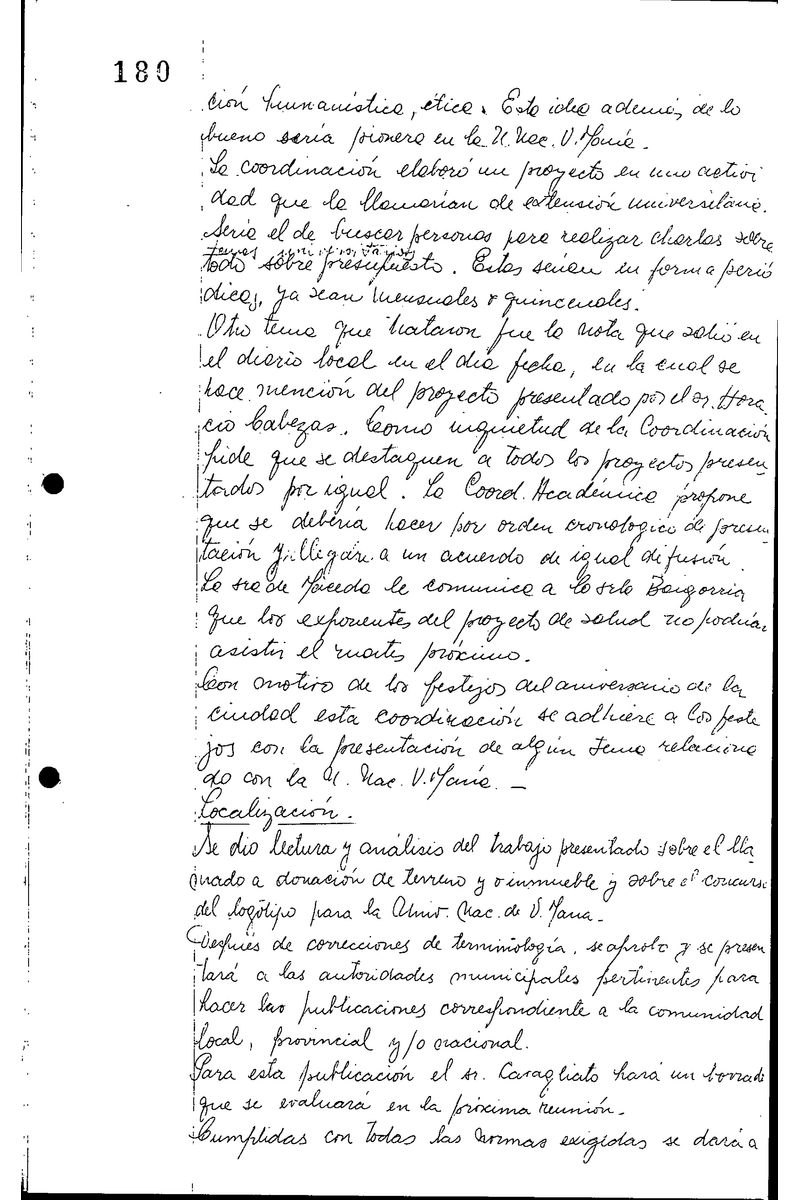 180
ción humanística, ética. Esta idea además de lo
bueno sería pionera en la U. Nac. V. María.
La coordinación elaboró un proyecto en una activi
dad que la llamarían de extensión universitaria.
Sería el de buscar personas para realizar charlas sobre
temas universitarios
todo sobre presupuesto. Estas serían en forma perió
dicas, ya sean mensuales o quincenales.
Otro tema que trataron fue la nota que salió en
el diario local en el día fecha, en la cual se
hace mención del proyecto presentado por el sr. Hora
cio Cabezas. Como inquietud de la Coordinación
pide que se destaquen a todos los proyectos presen
tados por igual. La Coord. Académica propone
que se debería hacer por orden cronologico de presen
tación y llegar a un acuerdo de igual difusión.
La sra de Maceda le comunica a la srta Baigorria
que los exponentes del proyecto de salud no podrían
asistir el martes próximo.
Con motivo de los festejos del aniversario de la
ciudad esta coordinación se adhiere a los feste
jos con la presentación de algún tema relaciona
do con la U. Nac. V. María. —
Localización.
Se dio lectura y análisis del trabajo presentado sobre el lla
mado a donación de terreno y o inmueble y sobre el concurso
del logotipo para la Univ. Nac. de V. Maria.-
Después de correcciones de terminología, se aprobo y se presen
tará a las autoridades municipales pertinentes para
hacer las publicaciones correspondiente a la comunidad
local, provincial y/o nacional.
Para esta publicación el sr. Caragliato hará un borrador
que se evaluará en la próxima reunión.-
Cumplidas con todas las normas exigidas se dará a